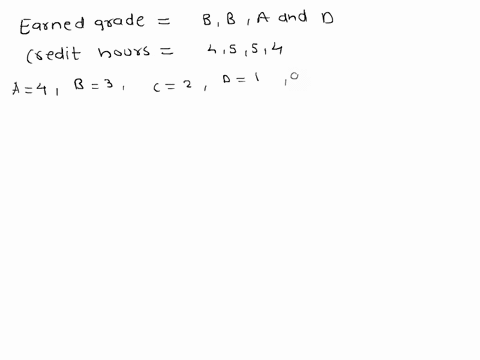 Earned grade = B, B, A and D
Credit hours = 4, 5, 5, 4
A = 4, B = 3, C = 2, D = 1, 0